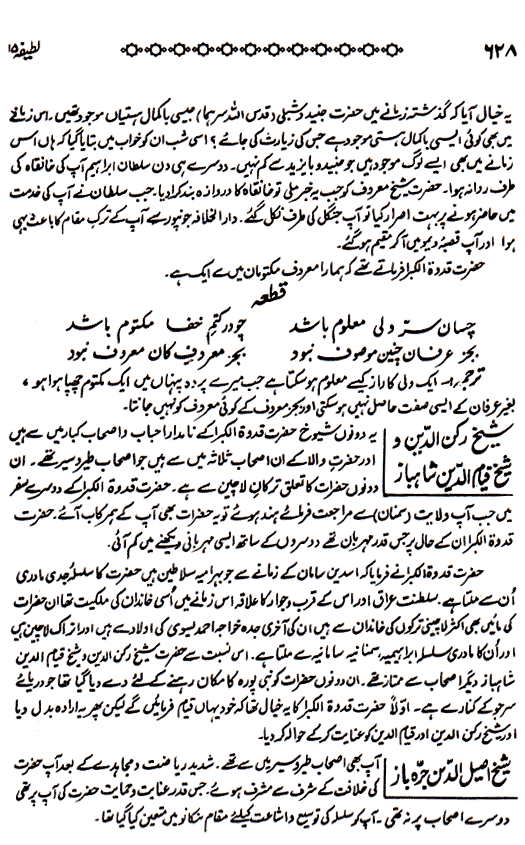 ۶۲۸ لطیفہ ۱۵
یہ خیال آیا کہ گذشتہ زمانے میں حضرت جنید و شبلی (قدس اللہ سرہما) جیسی باکمال ہستیاں موجود تھیں۔ اس زمانے
میں بھی کوئی ایسی باکمال ہستی موجود ہے جس کی زیارت کی جائے؟ اسی شب ان کو خواب میں بتایا گیا کہ ہاں اس
زمانے میں بھی ایسے لوگ موجود ہیں جو جنید و بایزید سے کم نہیں۔ دوسرے ہی دن سلطان ابراہیم آپ کی خانقاہ کی
طرف روانہ ہوا۔ حضرت شیخ معروف کو جب یہ خبر ملی تو خانقاہ کا دروازہ بند کرا دیا۔ جب سلطان نے آپ کی خدمت
میں حاضر ہونے پر بہت اصرار کیا تو آپ جنگل کی طرف نکل گئے۔ دارالخلافہ جونپور سے آپ کے ترک مقام کا باعث یہی
ہوا اور آپ قصبہ دیو میں آ کر مقیم ہو گئے۔
حضرت قدوۃ الکبرا فرماتے تھے کہ ہمارا معروف مکتومان میں سے ایک ہے۔
قطعہ
چساں سرّ ولی معلوم باشد چو در کتم خفا مکتوم باشد
بجز عرفان چنیں موصوف نبود بجز معروف کان معروف نبود
ترجمہ:۔ ایک ولی کا راز کیسے معلوم ہو سکتا ہے جب میرے پردہ پنہاں میں ایک مکتوم چھپا ہوا ہو،
بغیر عرفان کے ایسی صفت حاصل نہیں ہو سکتی اور بجز معروف کے کوئی معروف کو نہیں جانتا۔
شیخ رکن الدین و
شیخ قیام الدین شاہباز
یہ دونوں شیوخ حضرت قدوۃ الکبرا کے نامدار احباب و اصحاب کبار میں سے ہیں
اور حضرت والا کے ان اصحاب ثلاثہ میں سے ہیں جو اصحاب طیر و سیر تھے۔ ان
دونوں حضرات کا تعلق ترکان لاچین سے ہے۔ حضرت قدوۃ الکبرا کے دوسرے سفر
میں جب آپ ولایت (سمنان) سے مراجعت فرمائے ہند ہوئے تو یہ حضرات بھی آپ کے ہمرکاب آئے۔ حضرت
قدوۃ الکبرا ان کے حال پر جس قدر مہربان تھے دوسروں کے ساتھ ایسی مہربانی دیکھنے میں کم آئی۔
حضرت قدوۃ الکبرا نے فرمایا کہ اسد بن سامان کے زمانے سے جو بہرامیہ سلاطین ہیں حضرت کا سلسلہ جدی مادری
اُن سے ملتا ہے۔ سلطنت عراق اور اس کے قرب و جوار کا علاقہ اس زمانے میں اُسی خاندان کی ملکیت تھا ان حضرات
کی مائیں بھی اکثر لاچینی ترکوں کی خاندان سے ہیں ان کی آخری جدہ خواجہ احمد یسوی کی اولاد سے ہیں اور اتراک لاچین ہی
اور اُن کا مادری سلسلہ ابراہیمیہ، سمنانیہ سامانیہ سے ملتا ہے۔ اس نسبت سے حضرت شیخ رکن الدین و شیخ قیام الدین
شاہباز دیگر اصحاب سے ممتاز تھے۔ ان دونوں حضرات کو نبی پورہ کا مکان رہنے کے لئے دے دیا گیا تھا جو دریائے
سرجو کے کنارے ہے۔ اولاً حضرت قدوۃ الکبرا کا یہ خیال تھا کہ خود یہاں قیام فرمائیں گے لیکن پھر یہ ارادہ بدل دیا
اور شیخ رکن الدین اور قیام الدین کو عنایت کر کے حوالہ کر دیا۔
شیخ اصیل الدین جرّہ باز
آپ بھی اصحاب طیر و سیر میں سے تھے۔ شدید ریاضت و مجاہدے کے بعد آپ حضرت
کی خلافت کے شرف سے مشرف ہوئے۔ جس قدر عنایت و حمایت حضرت کی آپ پر تھی
دوسرے اصحاب پر نہ تھی۔ آپ کو سلسلہ کی توسیع و اشاعت کیلئے مقام شکانو میں متعین کیا گیا تھا۔